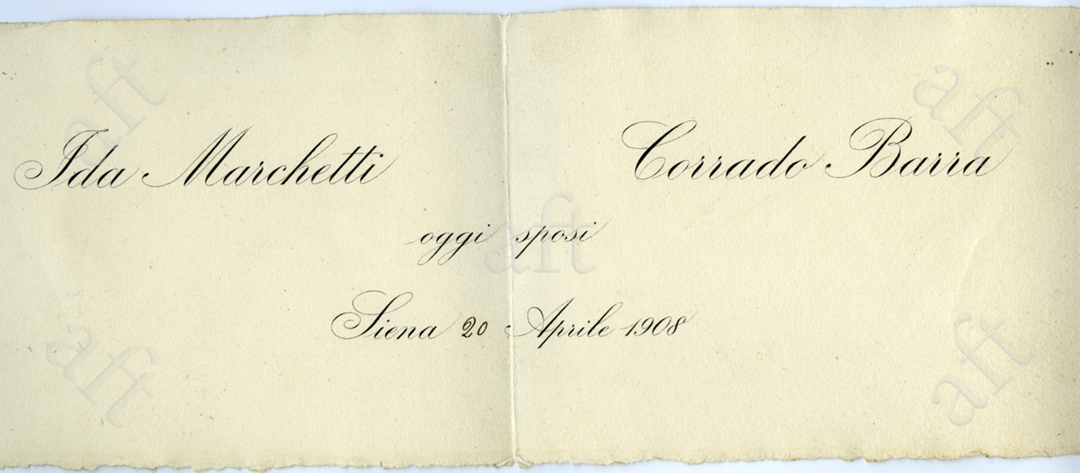 Ida Marchetti Corrado Barra
oggi sposi
Siena 20 Aprile 1908
aft
aft
aft
aft
aft